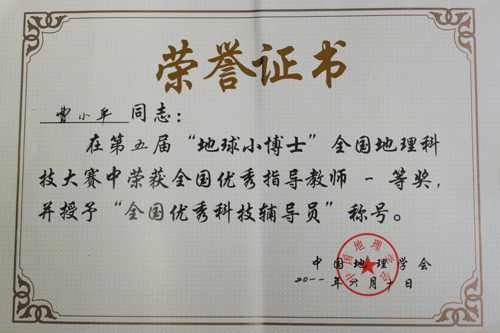 荣誉证书
曹小军 同志：
在第五届“地球小博士”全国地理科
技大赛中荣获全国优秀指导教师 一 等奖，
并授予“全国优秀科技辅导员”称号。
中国地理学会
二〇一一年六月十日
中国地理学会